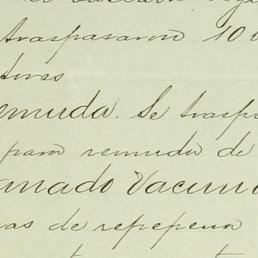 traspasaron 10
emuda. Se trasp
para remuda de
anado Vacun
as de repepena